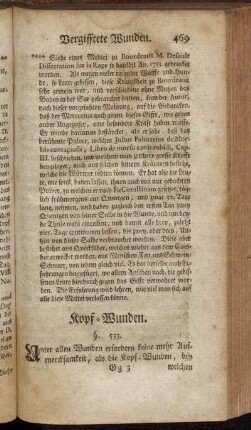 Vergifftete Wunden. 469
**** Siehe eines Medici zu Bourdeaux M. Desault
Dissertation sur la Rage so daselbst An. 1733. gedrucket
worden. Als wegen vieler rasender Wölffe und Hun-
de, so Leute gebissen, diese Kranckheit zu Bourdeaux
sehr gemein war, und verschiedene ohne Nutzen des
Baden in der See gebrauchet hatten, kam der Autor,
nach vorgefaßter Meinung, auf die Gedancken,
daß der Mercurius auch gegen dieses Gifft, wo gegen
andere Ungeziefer, eine besondere Krafft haben müste.
Er wurde darum um desto mehr, da er sahe, daß das
berühmte Pulver, welches Julius Palmarius de Mor-
bis contagiosis, Libro de morsu canis rabidi, Cap.
III. beschrieben, aus welchem die
welche die Würmer tödten können. Er hat also die
sen, sowol
Pulver, zu welcher er noch die Corallinam gesetzet, täg-
lich frühmorgens ein Quintgen, und zwar zehn Tage
lang nehmen, und dabey zugleich den ersten Tag zwey
Quentgen von seiner Salbe in die Wunde, und um bey-
de Theile wohl einreiben, und damit alle drey,
vier Tage continuiren lassen, bis zwey, auch wohl drey
Untzen von dieser Salbe verbrauchet worden. Diese aber
bestehet aus Quecksilber, welches wieder aus dem Cinno-
ber erwecket worden, aus Menschen Fett und Schwein-
Schmeer, von jedem gleich viel. Es hat derselbe auch die
fahrungen beygefüget, wo allem Ansehen nach, die gebis-
senen Leute hierdurch gegen das Gifft verwahret wor-
den. Die Erfahrung wird lehren, wie viel man sich auf
alle diese Mittel verlassen könne.
Kopf-Wunden.
§. 533.
Unter allen Wunden erfordern keine mehr Auf-
mercksamkeit, als die Kopf-Wunden, bey
Gg 3 welchen